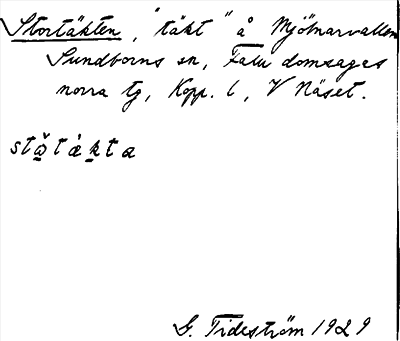 Stortäkten, "täkt" å Mjölnarvallen
Sundborns sn, Falu domsagas
norra tg, Kopp. l, V Näset.
G. Tideström 1929